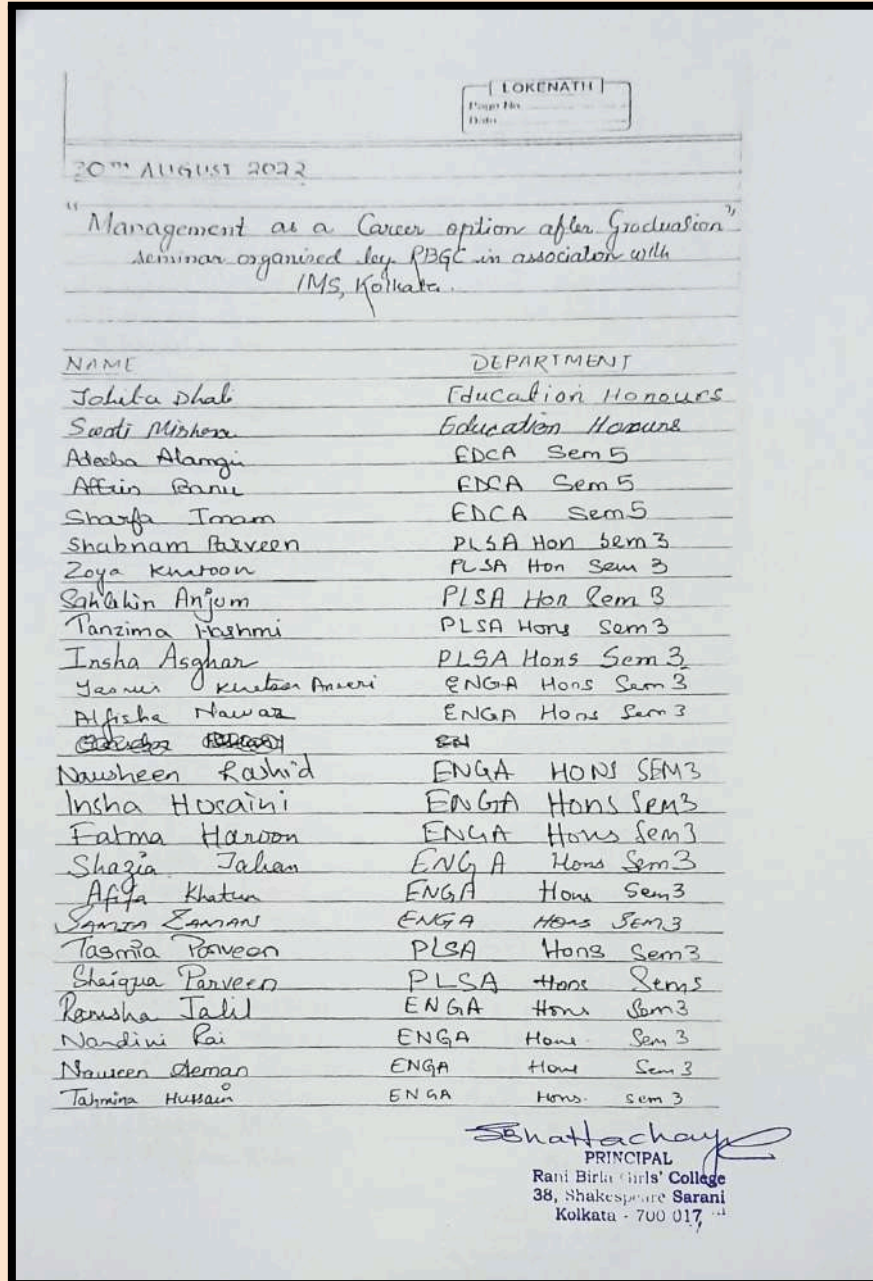 LOKENATH
Page No.
Date
20TH AUGUST 2022
"Management as a Career option after Graduasion"
seminar organised by RBGC in association with
IMS, Kolkata.
NAME DEPARTMENT
Johita Dhali Education Honours
Swati Mishra Education Honours
Adeeba Alamgir EDCA Sem 5
Affrin Banu EDCA Sem 5
Sharfa Imam EDCA Sem 5
Shabnam Parveen PLSA Hon Sem 3
Zoya Khatoon PLSA Hon Sem 3
Anjum PLSA Hon Sem 3
Tanzima Hashmi PLSA Hons Sem 3
Insha Asghar PLSA Hons Sem 3
ENGA Hons Sem 3
Alfisha Nawaz ENGA Hons Sem 3
EN
Nawsheen Rashid ENGA HONS SEM3
Insha Hosaini ENGA Hons Sem3
Fatma Haroon ENGA Hons Sem3
Shazia Jahan ENGA Hons Sem3
Afifa Khatun ENGA Hons Sem3
SAMIA ZAMAN ENGA HONS SEM3
Tasmia Parveen PLSA Hons Sem3
Shaiqua Parveen PLSA Hons Sem5
Ramsha Jalil ENGA Hons Sem3
Nandini Rai ENGA Hons. Sem 3
Naureen Aeman ENGA Hons Sem 3
Tahmina Hussain ENGA Hons. Sem 3
SBhattacharya
PRINCIPAL
Rani Birla Girls' College
38, Shakespeare Sarani
Kolkata - 700 017